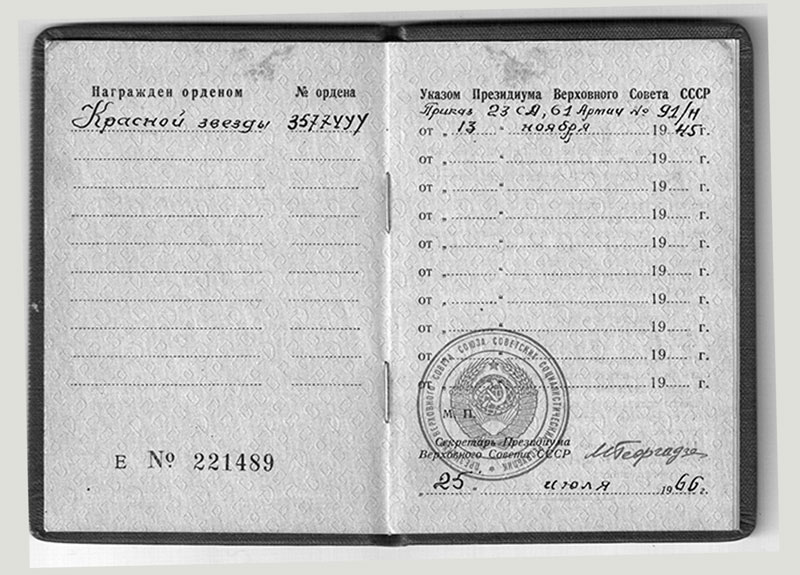 Награжден орденом № ордена
Красной звезды 3577444
Е № 221489
Указом Президиума Верховного Совета СССР
Приказ 23 СД, 61 Армии № 91/н
от „ 13 “ ноября 1945г.
от „ “ 19 г.
от „ “ 19 г.
от „ “ 19 г.
от „ “ 19 г.
от „ “ 19 г.
от „ “ 19 г.
от „ “ 19 г.
от „ “ 19 г.
от „ “ 19 г.
ПРЕЗИДИУМ ВЕРХОВНОГО СОВЕТА СОЮЗА СОВЕТСКИХ СОЦИАЛИСТИЧЕСКИХ РЕСПУБЛИК
М. П.
Секретарь Президиума
Верховного Совета СССР МГеоргадзе
„ 25 “ июля 1966 г.